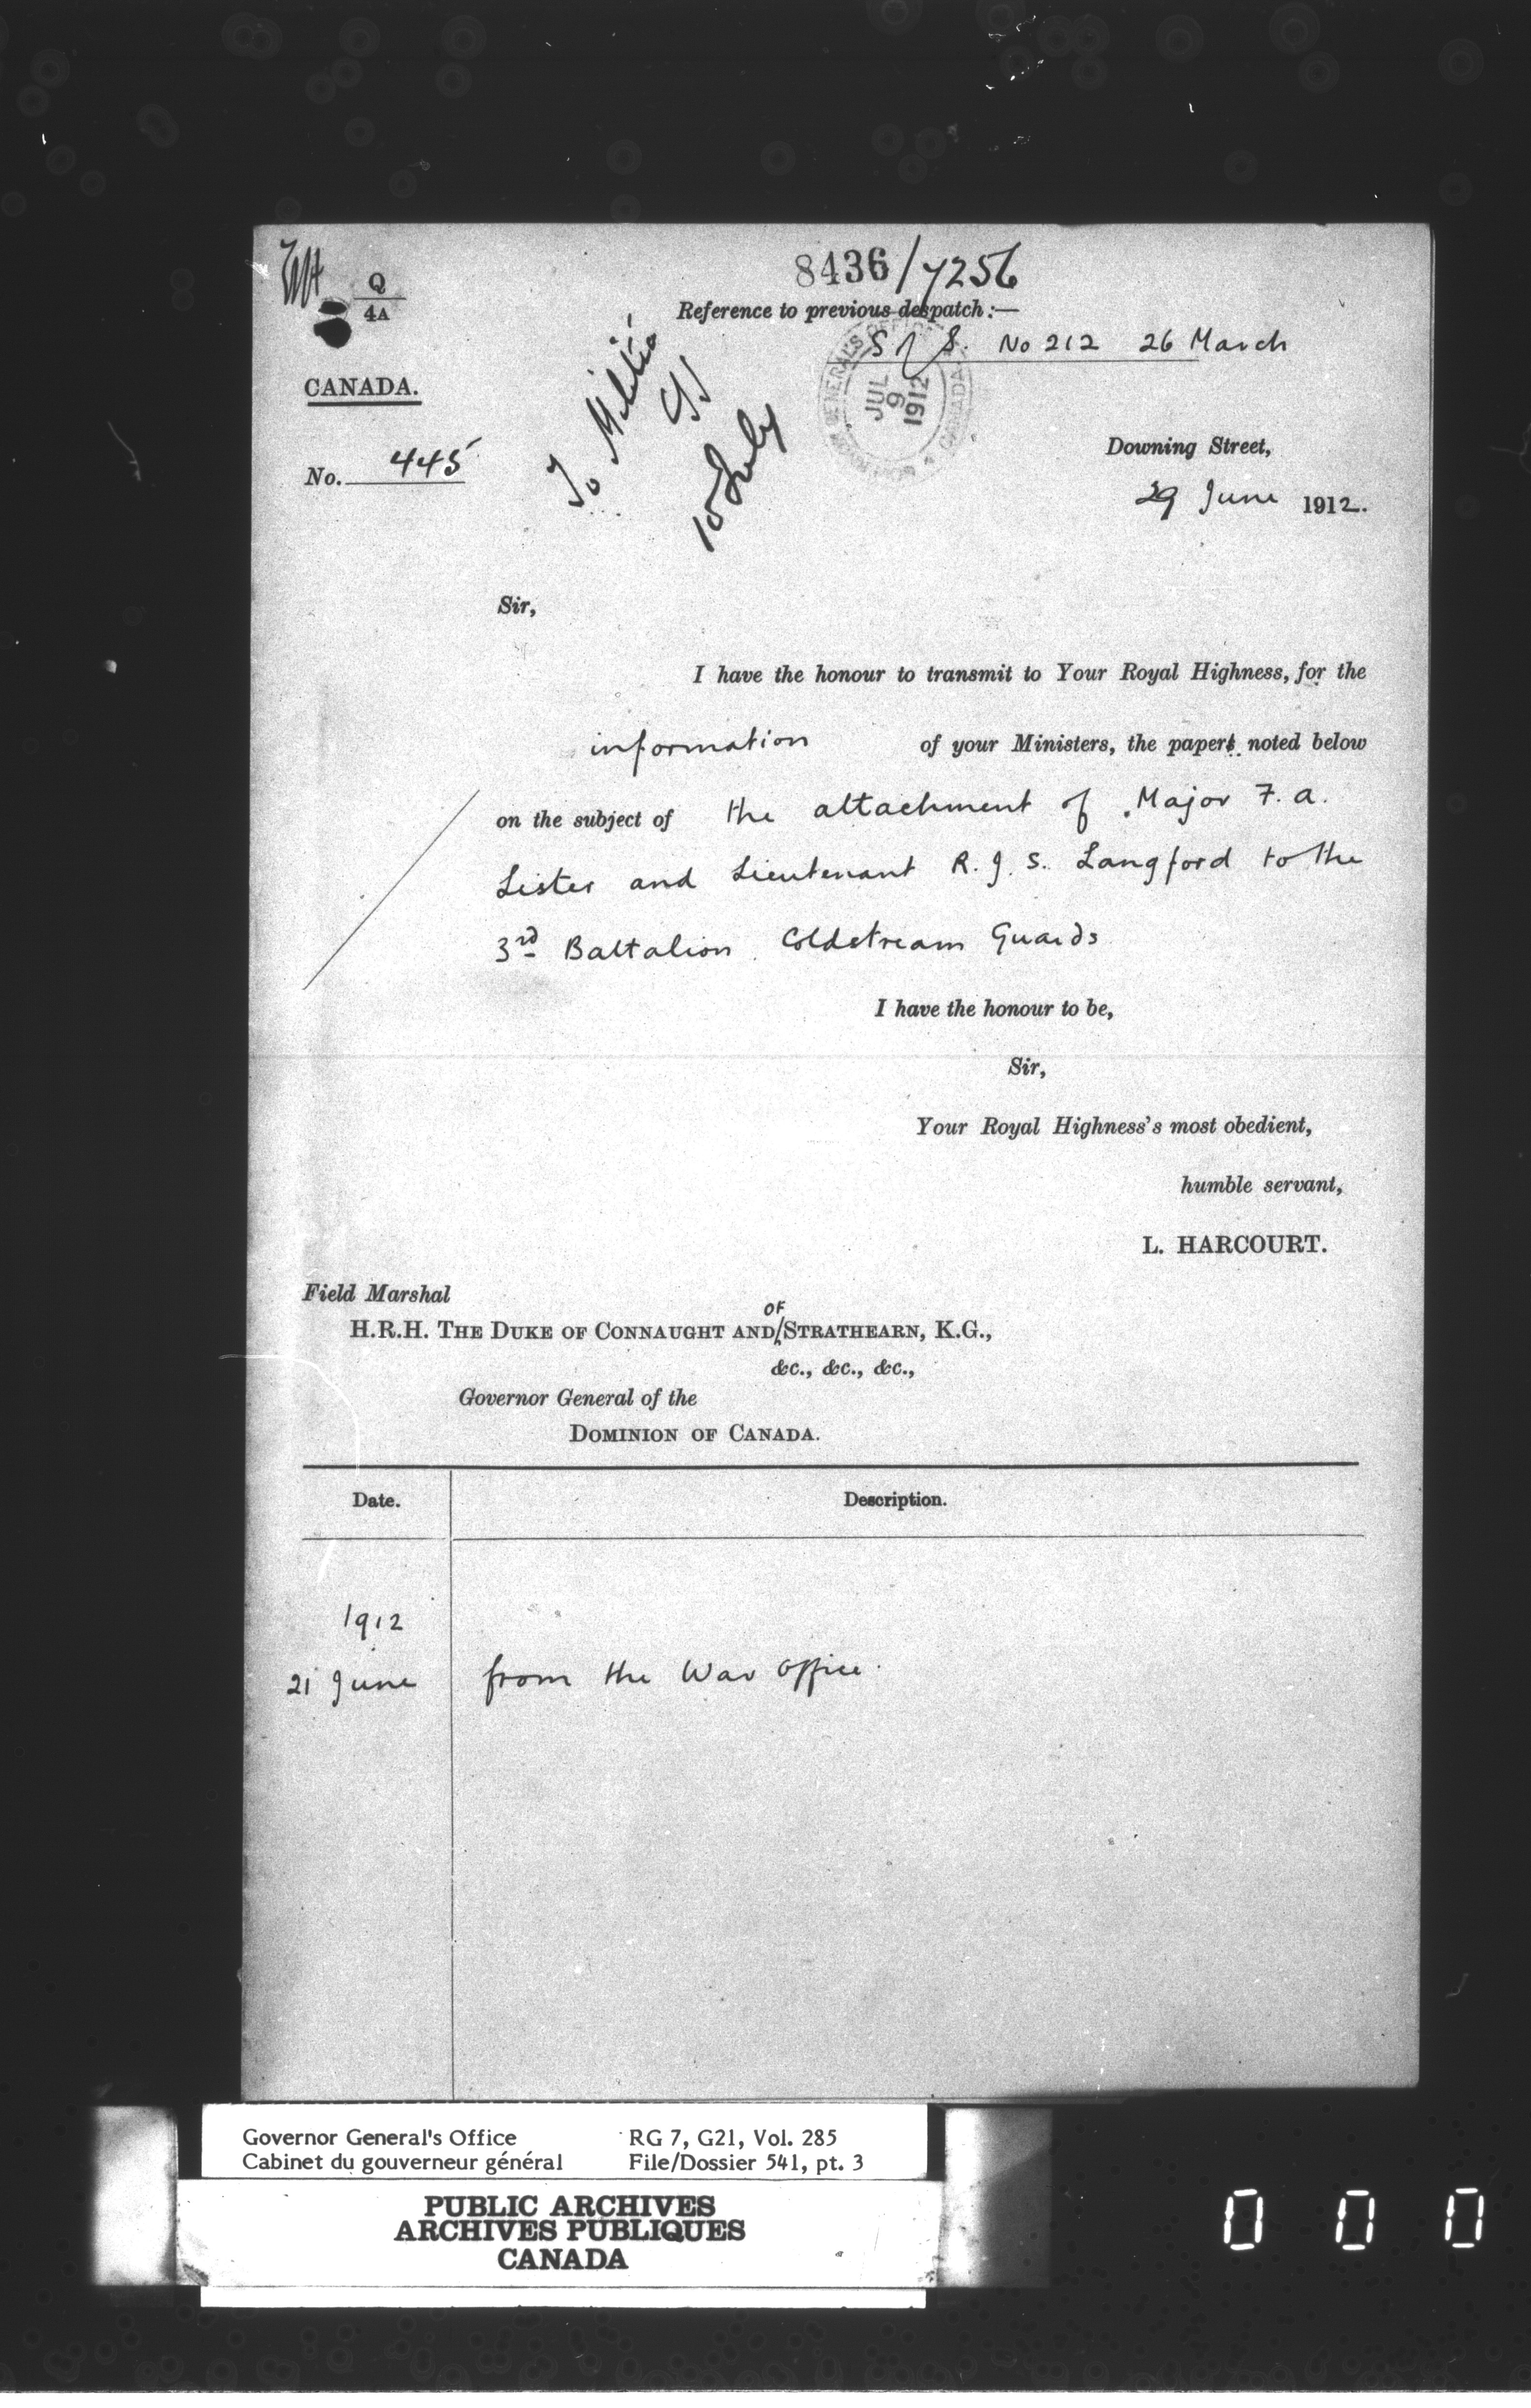 8436/7256
Q
4A
Reference to previous despatch:—
S/S. No 212 26 March
CANADA.
To Militia
10 July
GOVERNOR GENERAL'S OFFICE
CANADA
JUL
9
1912
No. 445
Downing Street,
29 June 1912.
Sir,
I have the honour to transmit to Your Royal Highness, for the
information of your Ministers, the papers noted below
on the subject of the attachment of Major F. A.
Lister and Lieutenant R. J. S. Langford to the
3rd Battalion Coldstream Guards
I have the honour to be,
Sir,
Your Royal Highness's most obedient,
humble servant,
L. HARCOURT.
Field Marshal
H.R.H. THE DUKE OF CONNAUGHT AND/OF STRATHEARN, K.G.,
&c., &c., &c.,
Governor General of the
DOMINION OF CANADA.
Date. Description.
1912
21 June from the War Office.
Governor General's Office RG 7, G21, Vol. 285
Cabinet du gouverneur général File/Dossier 541, pt. 3
PUBLIC ARCHIVES
ARCHIVES PUBLIQUES
CANADA
0 0 0